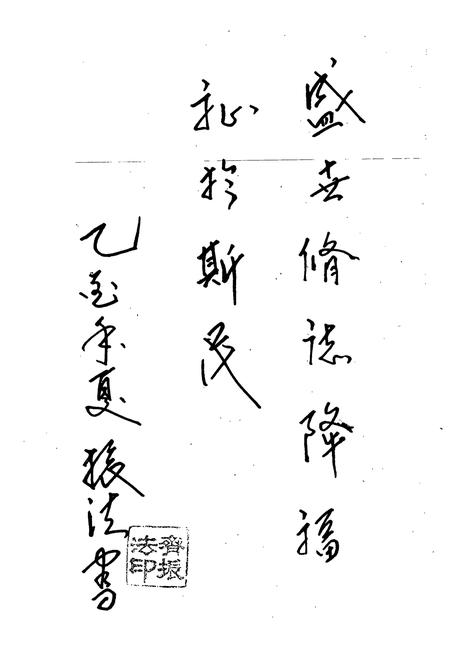 盛世修誌降福
祉於斯民
乙亥年夏 振法書
齊振
法印